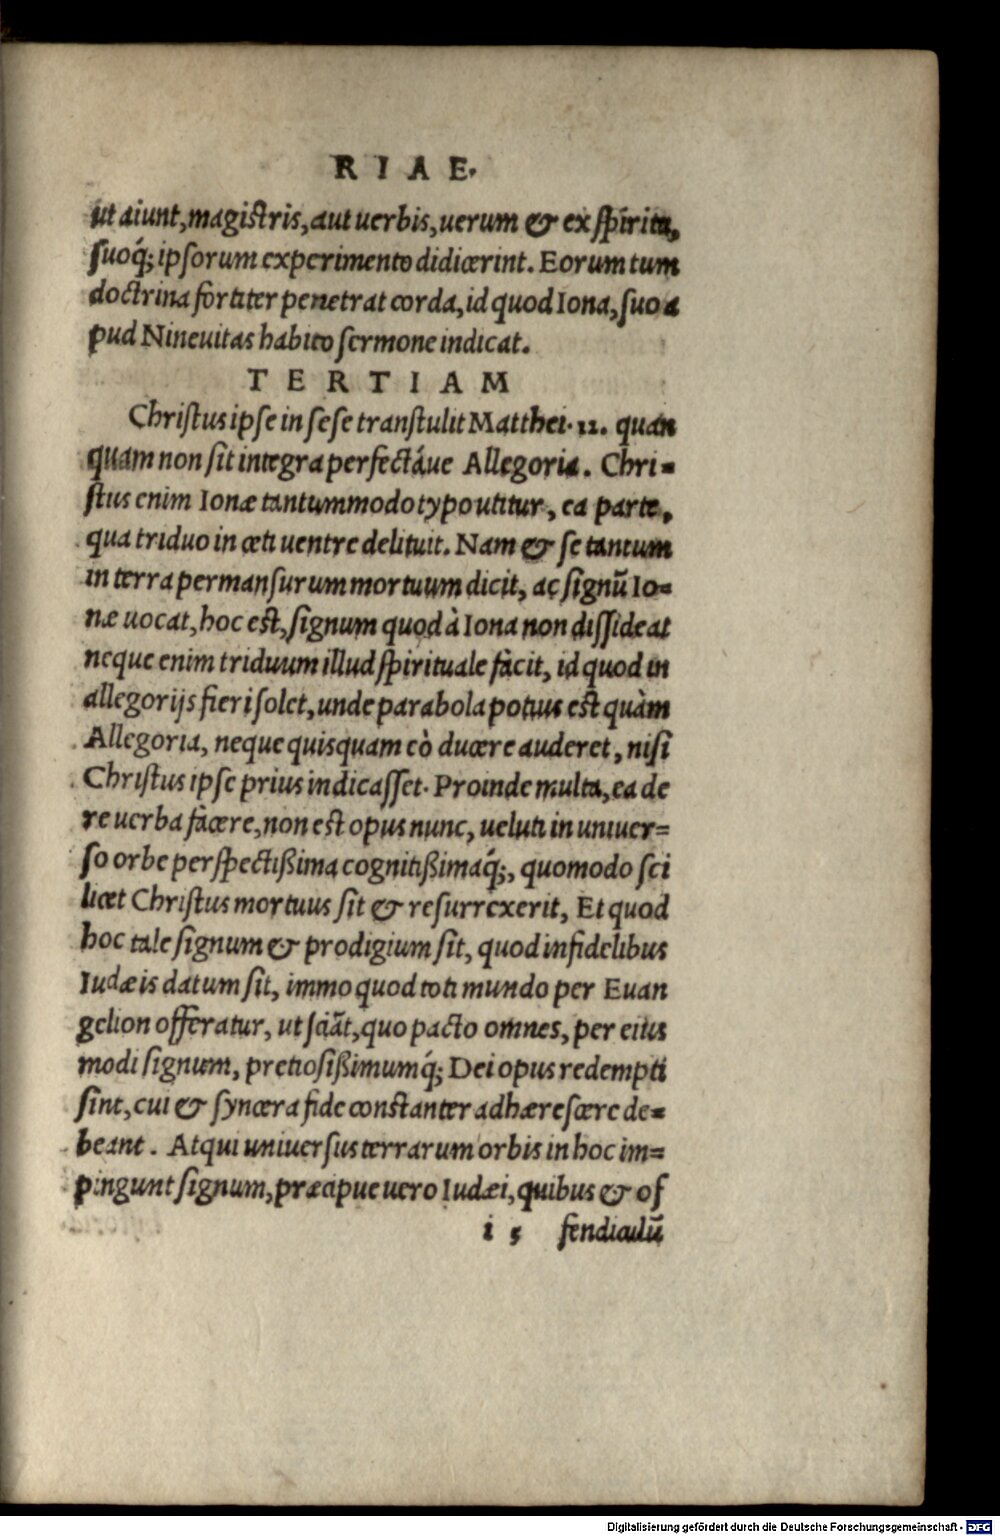 RIAE.
ut aiunt, magistris, aut uerbis, uerum & ex spiritu,
suoq́; ipsorum experimento didicerint. Eorum tum
doctrina fortiter penetrat corda, id quod Iona, suo a
pud Nineuitas habito sermone indicat.
TERTIAM
Christus ipse in sese transtulit Matthei. 12. quan
quam non sit integra perfectáue Allegoria. Chri=
stus enim Ionæ tantummodo typo utitur, ea parte,
qua triduo in ceti uentre delituit. Nam & se tantum
in terra permansurum mortuum dicit, ac signũ Io=
næ uocat, hoc est, signum quod à Iona non dissideat
neque enim triduum illud spirituale facit, id quod in
allegorijs fieri solet, unde parabola potius est quàm
Allegoria, neque quisquam eò ducere auderet, nisi
Christus ipse prius indicasset. Proinde multa, ea de
re uerba facere, non est opus nunc, ueluti in uniuer=
so orbe perspectißima cognitißimaq́;, quomodo sci
licet Christus mortuus sit & resurrexerit, Et quod
hoc tale signum & prodigium sit, quod infidelibus
Iudæis datum sit, immo quod toti mundo per Euan
gelion offeratur, ut sciãt, quo pacto omnes, per eius
modi signum, pretiosißimumq́; Dei opus redempti
sint, cui & syncera fide constanter adhærescere de=
beant. Atqui uniuersus terrarum orbis in hoc im=
pingunt signum, præcipue uero Iudæi, quibus & of
i 5 fendiculũ
Digitalisierung gefördert durch die Deutsche Forschungsgemeinschaft - DFG